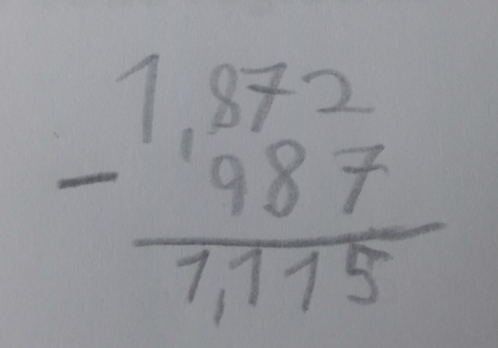 1,872
- 987
1,115